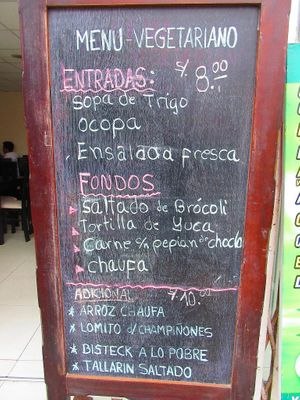 MENU-VEGETARIANO
ENTRADAS: S/. 8.00
Sopa de Trigo
Ocopa
Ensalada fresca
FONDOS
Saltado de Brócoli
Tortilla de Yuca
Carne c/ pepian de choclo
chaufa
ADICIONAL S/10.00
* ARROZ CHAUFA
* LOMITO d/CHAMPIÑONES
* BISTECK A LO POBRE
* TALLARIN SALTADO